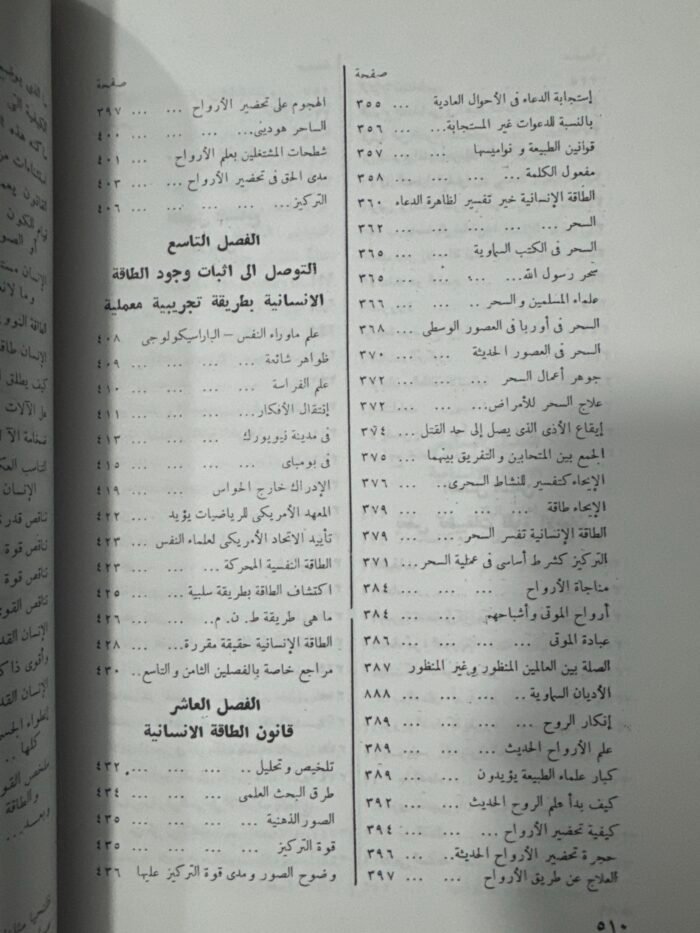 صفحة
إستجابة الدعاء فى الأحوال العادية ... ٣٥٥
بالنسبة للدعوات غير المستجابة... ... ٣٥٦
قوانين الطبيعة و نواميسها ... ... ٣٥٧
مفعول الكلمة ... ... ... ... ٣٥٨
الطاقة الإنسانية خير تفسير لظاهرة الدعاء ٣٦٠
السحر ... ... ... ... ... ٣٦٢
السحر فى الكتب السماوية ... ... ٣٦٥
سحر رسول الله... ... ... ... ٣٦٥
علماء المسلمين و السحر .. ... ... ٣٦٦
السحر فى أوربا فى العصور الوسطى ... ٣٦٨
السحر فى العصور الحديثة ... ... ٣٧٠
جوهر أعمال السحر ... ... ... ٣٧٢
علاج السحر للأمراض... ... ... ٣٧٢
إيقاع الأذى الذى يصل إلى حد القتل ... ٣٧٤
الجمع بين المتحابين و التفريق بينهما ... ٣٧٥
الإيحاء كتفسير للنشاط السحرى.. ... ٣٧٦
الإيحاء طاقة ... ... ... ... ٣٧٩
الطاقة الإنسانية تفسر السحر ... ... ٣٧٩
التركيز كشرط أساسى فى عملية السحر... ٣٧١
مناجاة الأرواح ... ... ... ٣٨٤
أرواح الموتى وأشباحهم ... ... ٣٨٤
عبادة الموتى ... ... ... ... ٣٨٦
الصلة بين العالمين المنظور وغير المنظور ٣٨٧
الأديان السماوية .. ... ... ... ٨٨٨
إنكار الروح ... ... ... ... ٣٨٩
علم الأرواح الحديث ... ... ... ٣٨٩
كبار علماء الطبيعة يؤيدون ... ... ٣٨٩
كيف بدأ علم الروح الحديث ... ... ٣٩٢
كيفية تحضير الأرواح ... ... ... ٣٩٤
حجرة تحضير الأرواح الحديثة.. ... ٣٩٦
العلاج عن طريق الأرواح ... ... ٣٩٧
صفحة
الهجوم على تحضير الأرواح ... ... ٣٩٧
الساحر هودينى... ... ... ... ٤٠٠
شطحات المشتغلين بعلم الأرواح ... ٤٠١
مدى الحق فى تحضير الأرواح ... ... ٤٠٣
التركيز... ... ... ... ... ٤٠٦
الفصل التاسع
التوصل الى اثبات وجود الطاقة
الانسانية بطريقة تجريبية معملية
علم ماوراء النفس – الباراسيكولوجى ٤٠٨
ظواهر شائعة ... ... ... ... ٤٠٩
علم الفراسة ... ... ... ... ٤١٠
إنتقال الأفكار... ... ... ... ٤١١
فى مدينة نيويورك ... ... ... ٤١٣
فى بومباى ... ... ... ... ٤١٥
الإدراك خارج الحواس ... ... ٤١٩
المعهد الأمريكى للرياضيات يؤيد ... ٤٢٢
تأييد الاتحاد الأمريكى لعلماء النفس ... ٤٢٣
الطاقة النفسية المحركة ... ... ... ٤٢٣
اكتشاف الطاقة بطريقة سلبية ... ... ٤٢٥
ما هى طريقة ط. ن. م.. ... ... ٤٢٦
الطاقة الإنسانية حقيقة مقررة... ... ٤٢٨
مراجع خاصة بالفصلين الثامن والتاسع.. ٤٣٠
الفصل العاشر
قانون الطاقة الانسانية
تلخيص و تحليل .. ... ... ... ٤٣٢
طرق البحث العلمى ... ... ... ٤٣٤
الصور الذهنية ... ... ... ... ٤٣٥
قوة التركيز ... ... ... ... ٤٣٥
وضوح الصور ومدى قوة التركيز عليها ٤٣٦
٥١٠